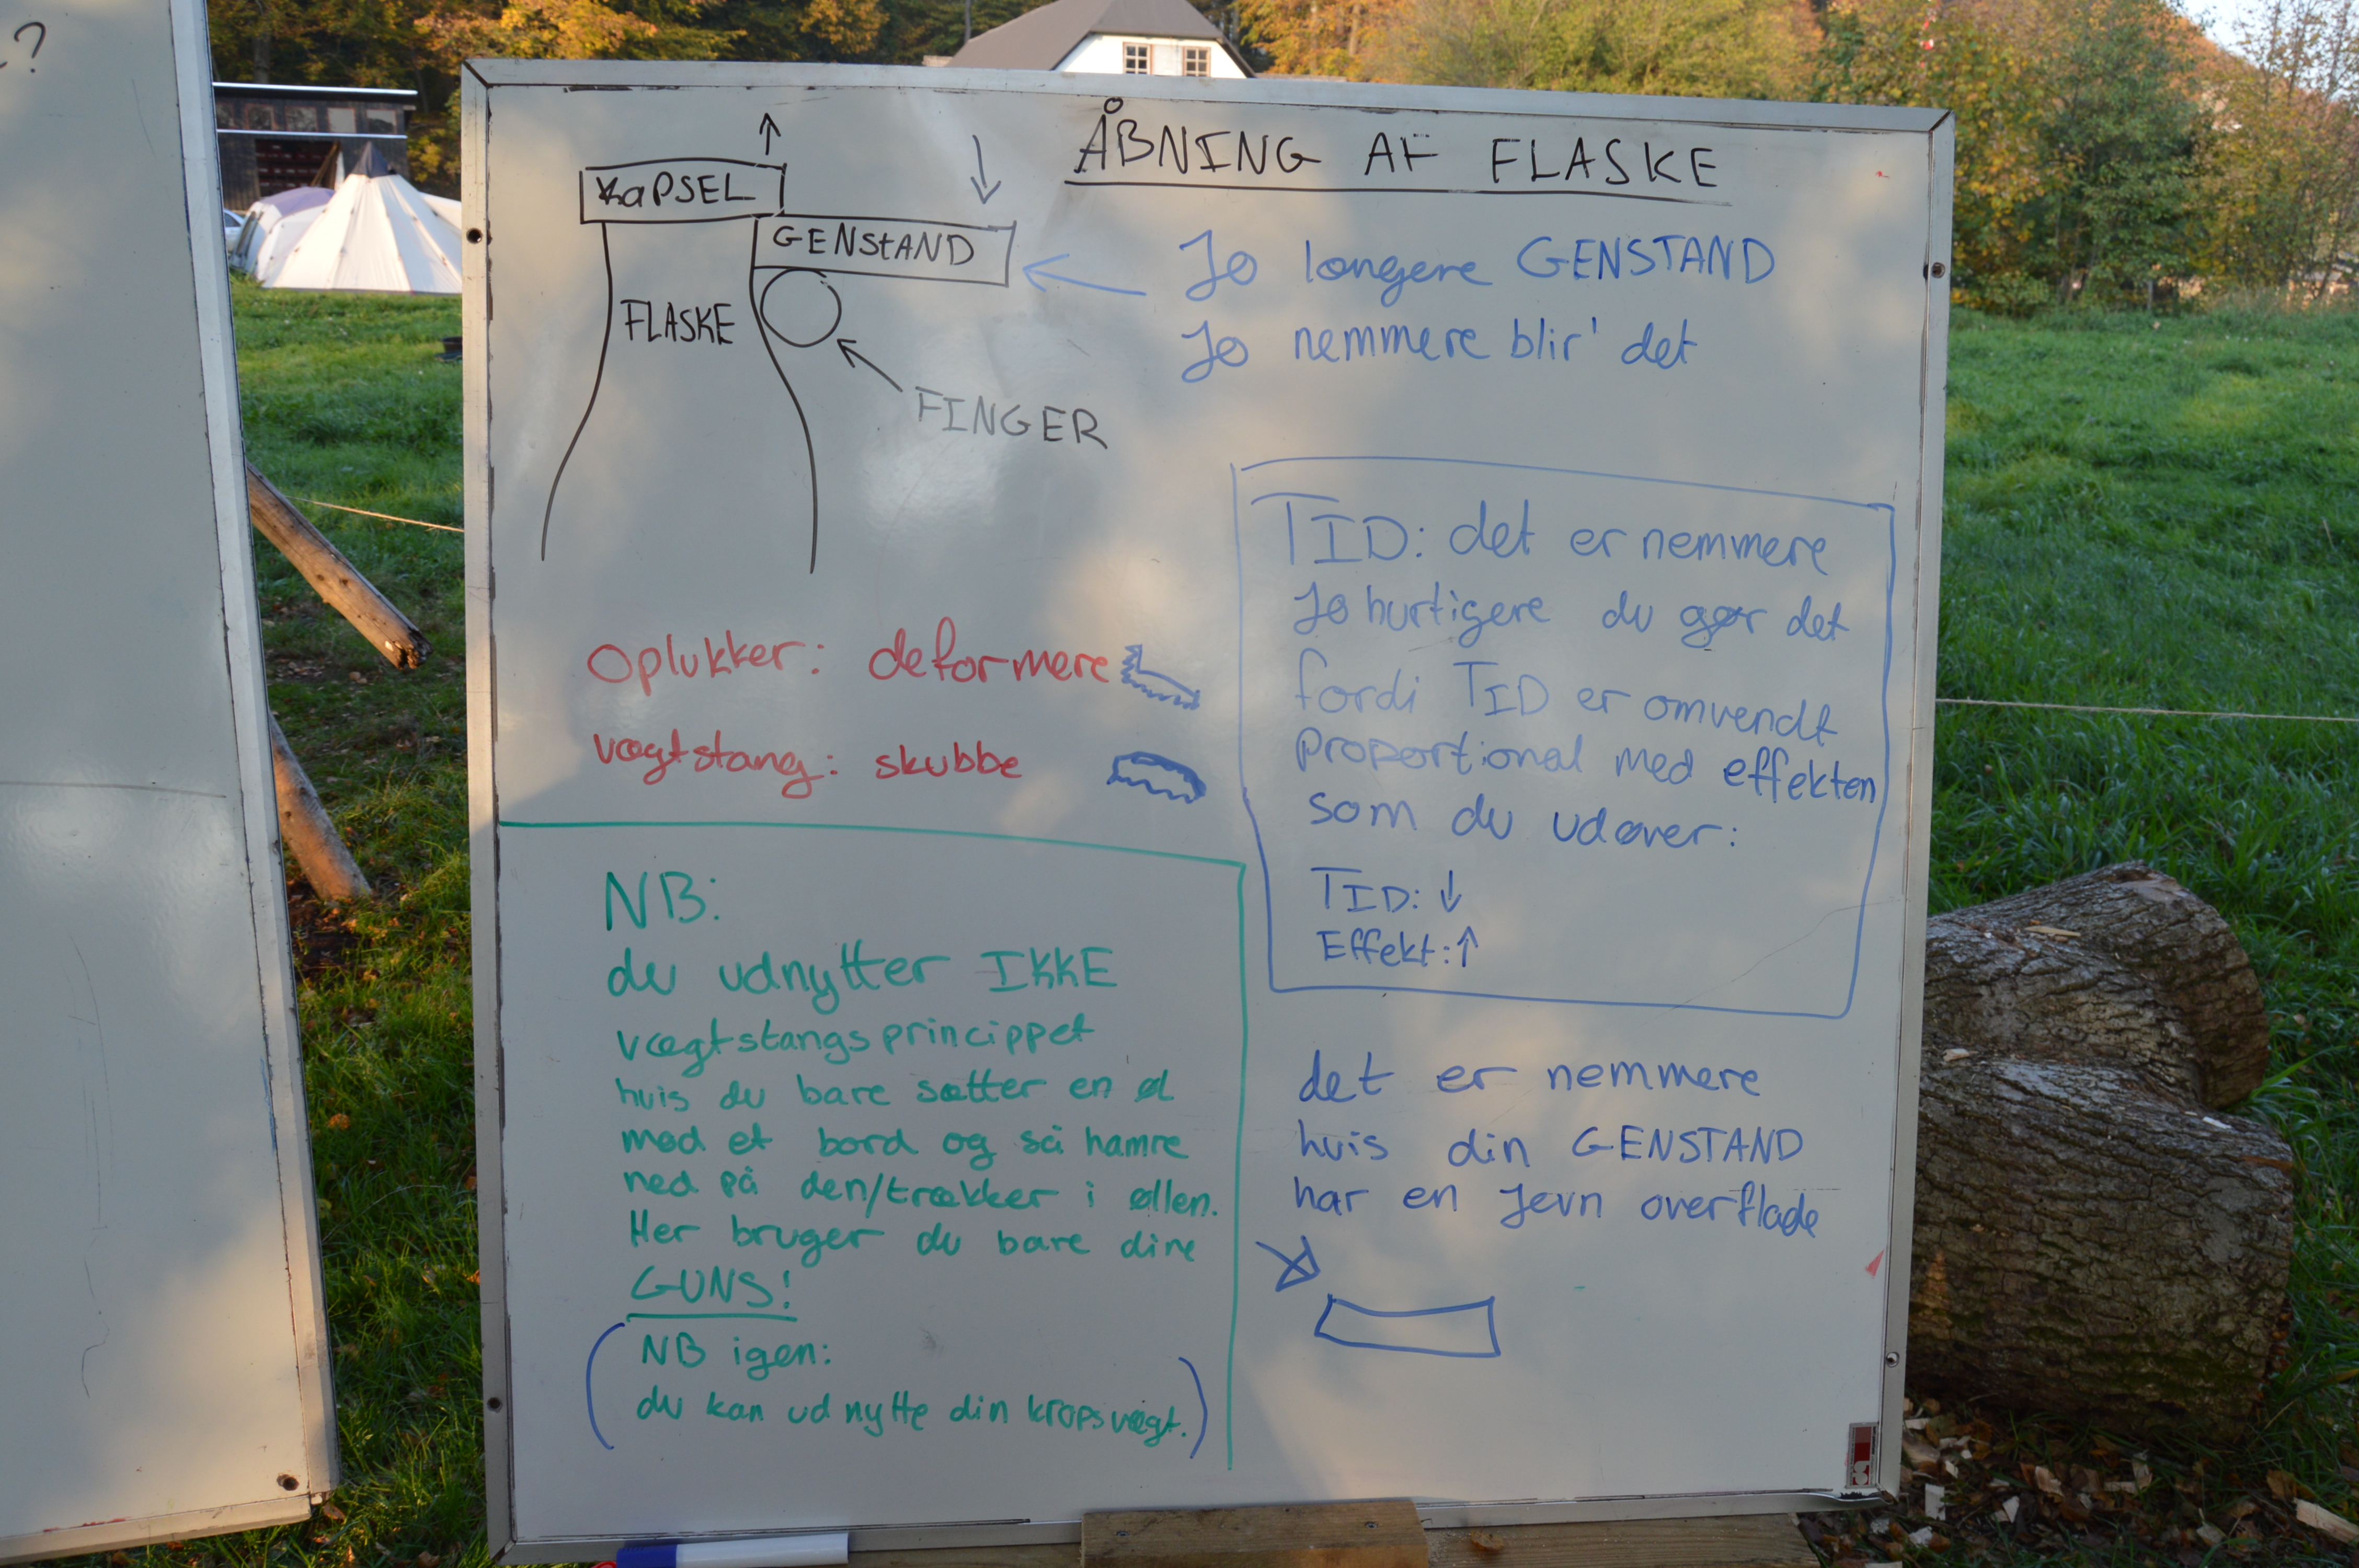 ?
ÅBNING AF FLASKE
KaPSEL
GENStAND
FLASKE
FINGER
Jo længere GENSTAND
Jo nemmere blir' det
TID: det er nemmere
Jo hurtigere du gør det
fordi TID er omvendt
proportional med effekten
som du udøver:
TID: ↓
Effekt: ↑
Oplukker: deformere
vægtstang: skubbe
NB:
du udnytter IKKE
vægtstangsprincippet
hvis du bare sætter en øl
mod et bord og så hamre
ned på den/trækker i øllen.
Her bruger du bare dine
GUNS!
(NB igen:
du kan udnytte din kropsvægt.)
det er nemmere
hvis din GENSTAND
har en Jævn overflade